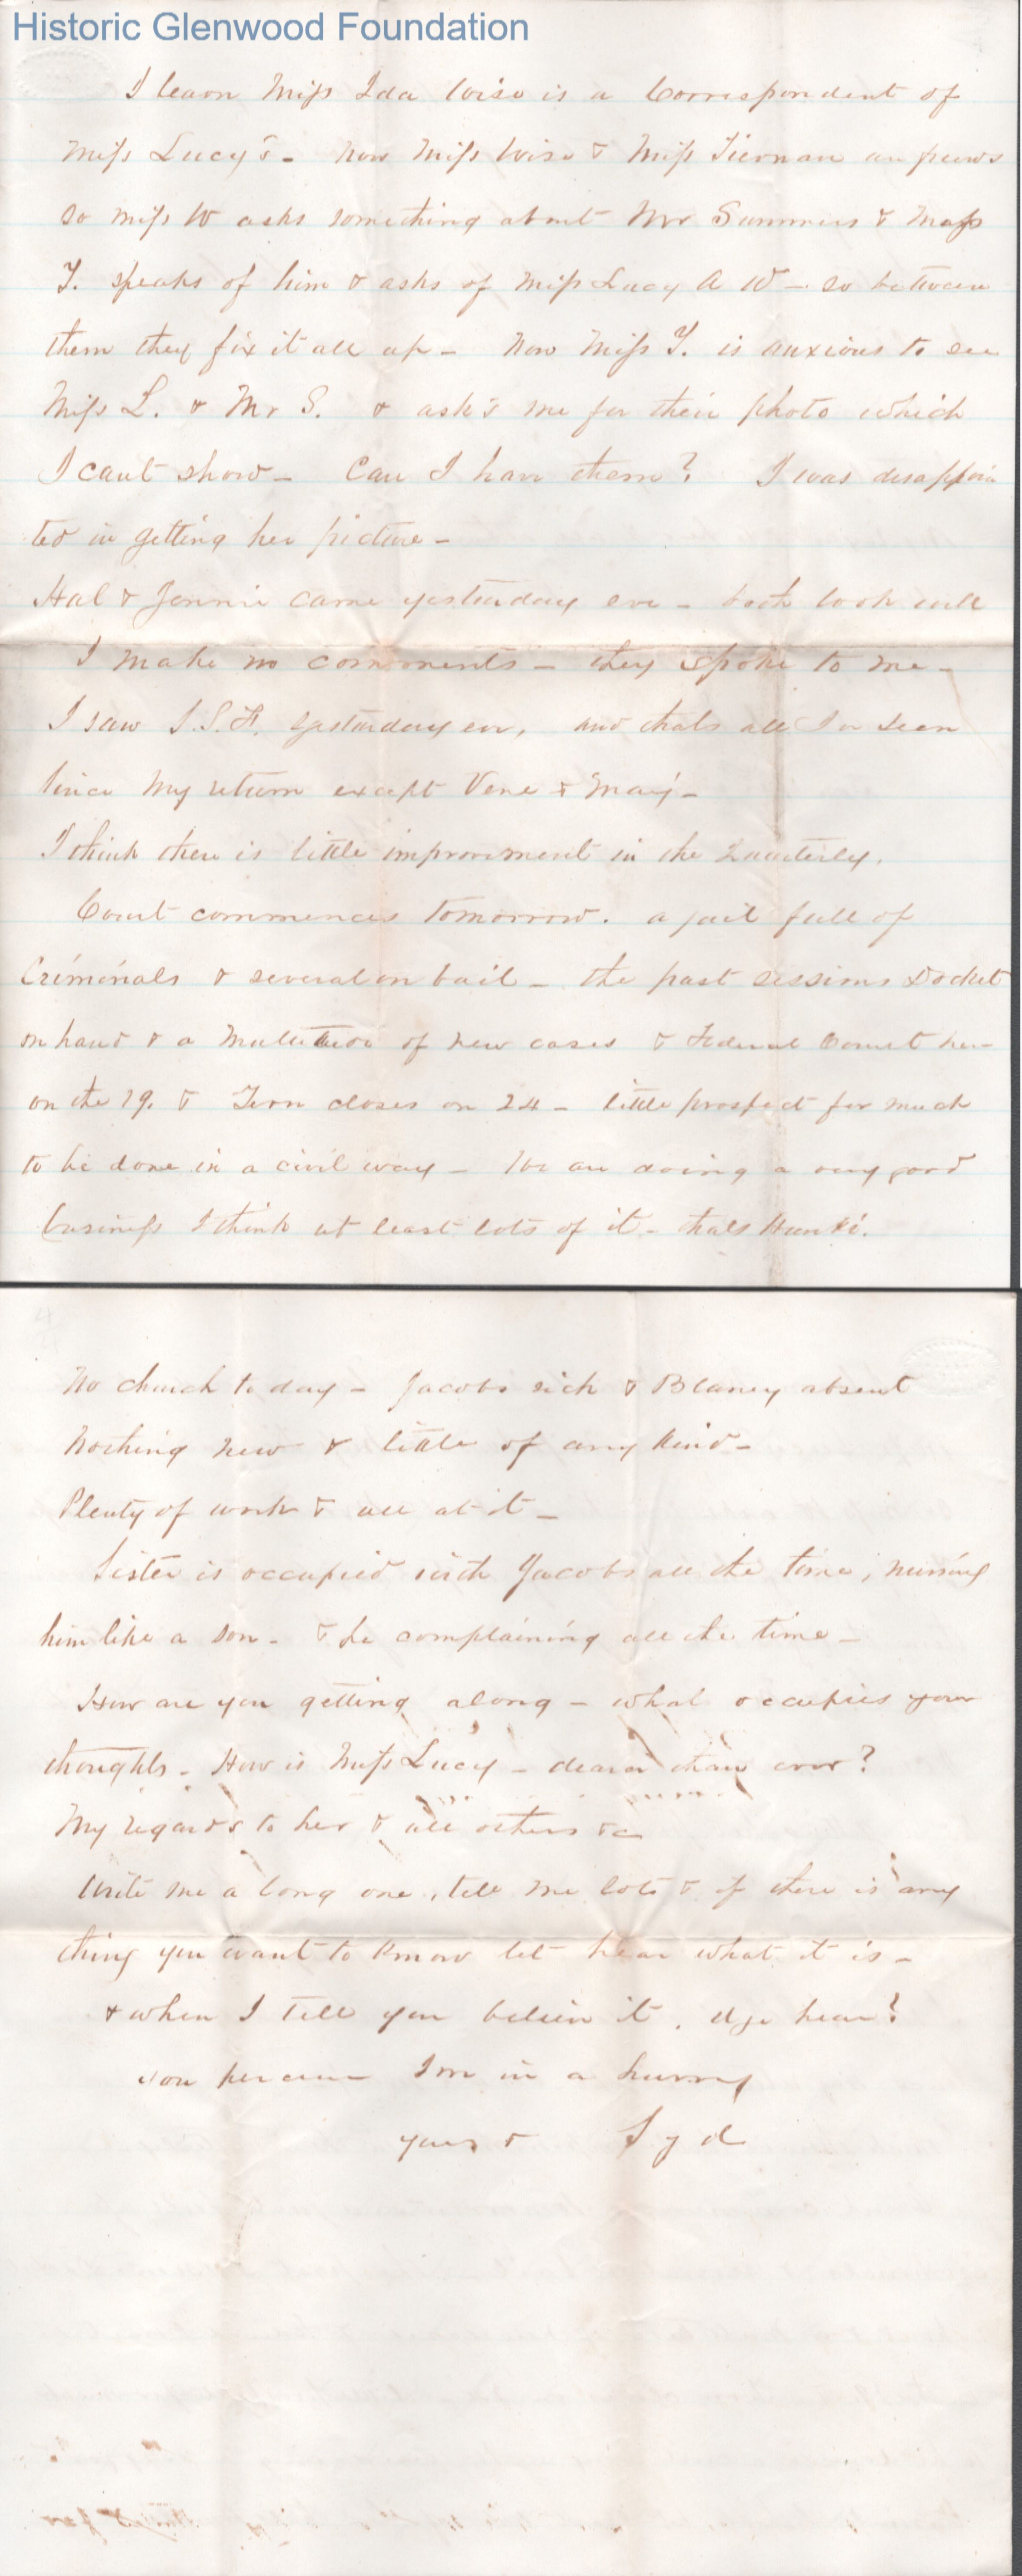 Historic Glenwood Foundation
I learn Miss Ida Wise is a Correspondent of
Miss Lucy's - Now Miss Wise & Miss Tiernan are
so Miss W asks something about Mr Summers & Miss
T. speaks of him & asks of Miss Lucy A W - so between
them they fix it all up - Now Miss T. is anxious to see
Miss L. & Mr S. & ask's me for their photo which
I cant show - Can I have them? I was disappoin
ted in getting her picture -
Hal & Jennie came yesterday eve - both look well
I make no comments - they spoke to me -
I saw yesterday eve, and thats all I've seen
since my return except Vene & May -
I think there is little improvement in the Quarterly.
Court commences tomorrow. a jail full of
Criminals & several on bail - the past sessions Docket
on hand & a Multitude of new cases & Federal Court here
on the 19. & Term closes on 24 - little prospect for much
to be done in a civil way - We are doing a very good
business I think at least lots of it - thats
No church to day - Jacobs sick & Blaney absent
Nothing new & little of any kind -
Plenty of work & all at it -
Sister is occupied with Jacobs all the time, nursing
him like a son - & he complaining all the time -
How are you getting along - what occupies your
thoughts - How is Miss Lucy - dearer than ever?
My regards to her & all others &c
Write me a long one, tell me lots & if there is any
thing you want to know let hear what it is -
& when I tell you believe it. hear?
You perceive I'm in a hurry
yours & Syd